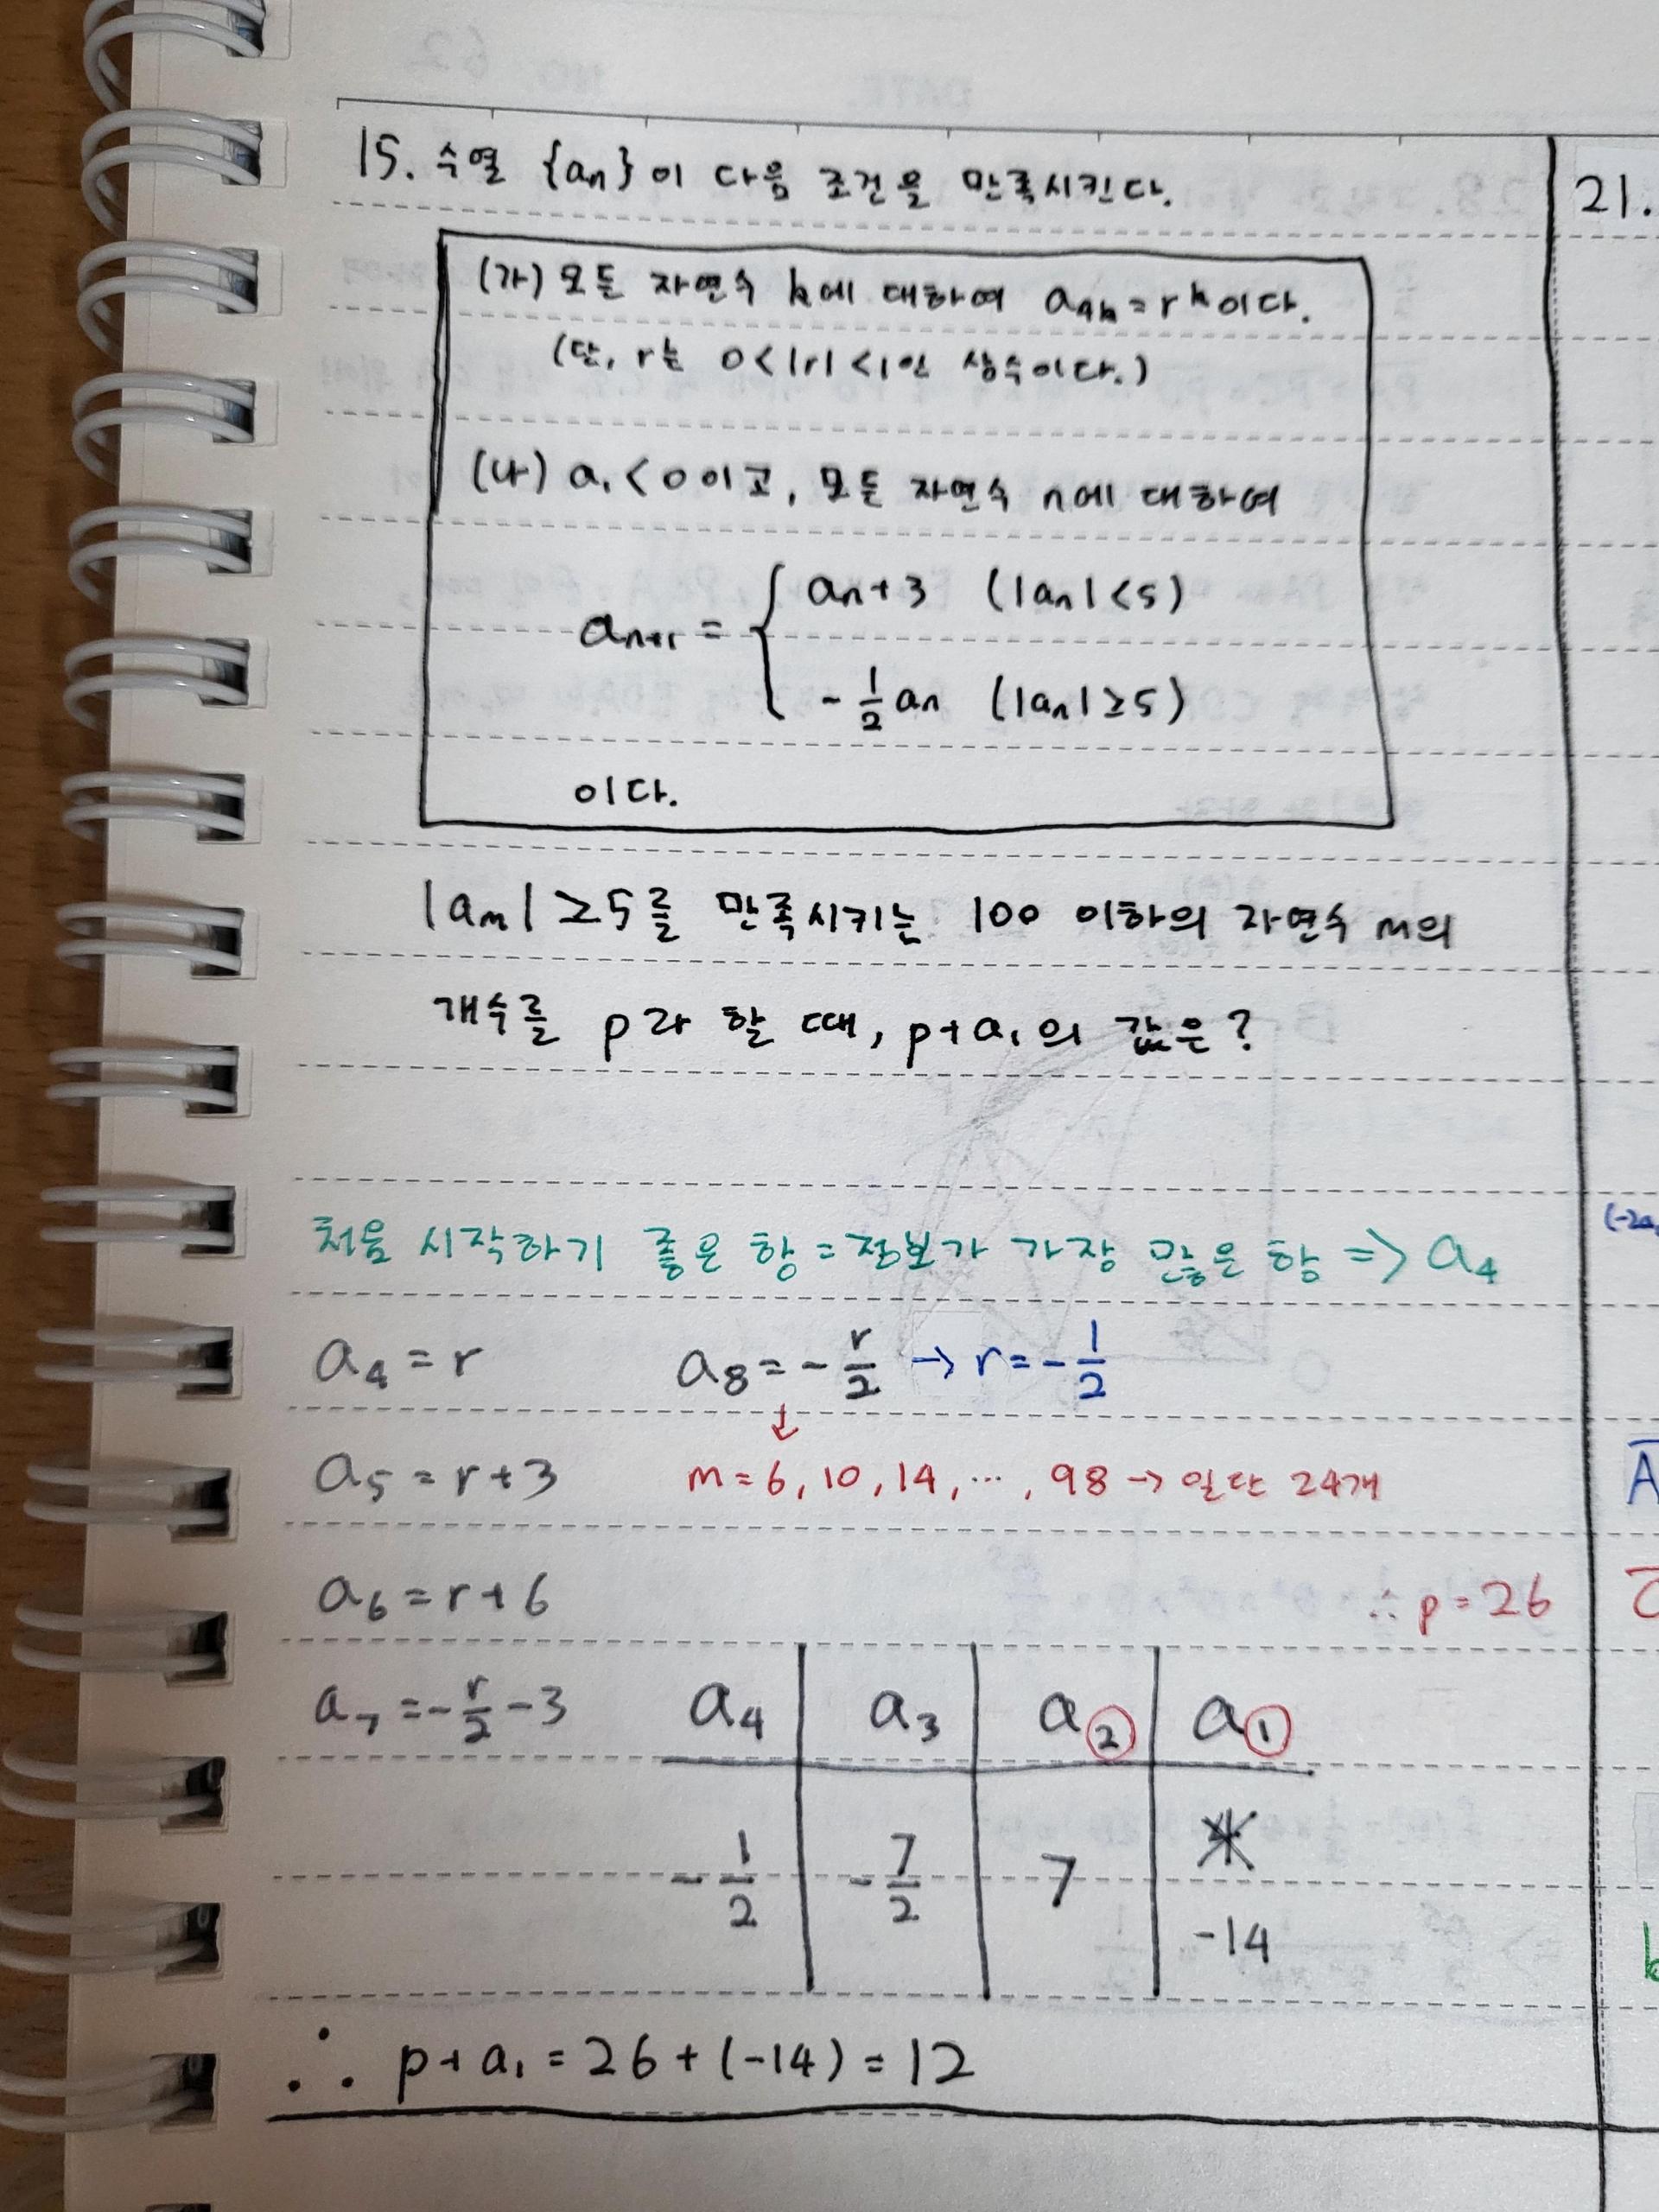 15. 수열 {aₙ}이 다음 조건을 만족시킨다.
(가) 모든 자연수 k에 대하여 a₄ₖ = rᵏ이다.
(단, r는 0<|r|<1인 상수이다.)
(나) a₁<0이고, 모든 자연수 n에 대하여
aₙ₊₁ = { aₙ+3 (|aₙ|<5)
-1/2 aₙ (|aₙ|≥5)
이다.
|aₘ|≥5를 만족시키는 100 이하의 자연수 m의
개수를 p라 할 때, p+a₁의 값은?
처음 시작하기 좋은 항 = 정보가 가장 많은 항 => a₄
a₄ = r a₈ = -r/2 → r = -1/2
↓
a₅ = r+3 m = 6, 10, 14, ⋯, 98 → 일단 24개
a₆ = r+6 ∴ p = 26
a₇ = -r/2 - 3 a₄ a₃ a② a①
-1/2 -7/2 7
-14
∴ p+a₁ = 26+(-14) = 12
21.